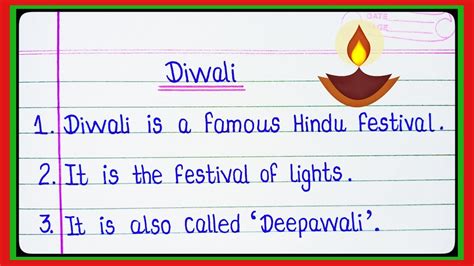 DATE
PAGE
Diwali
1. Diwali is a famous Hindu festival.
2. It is the festival of lights.
3. It is also called 'Deepawali'.